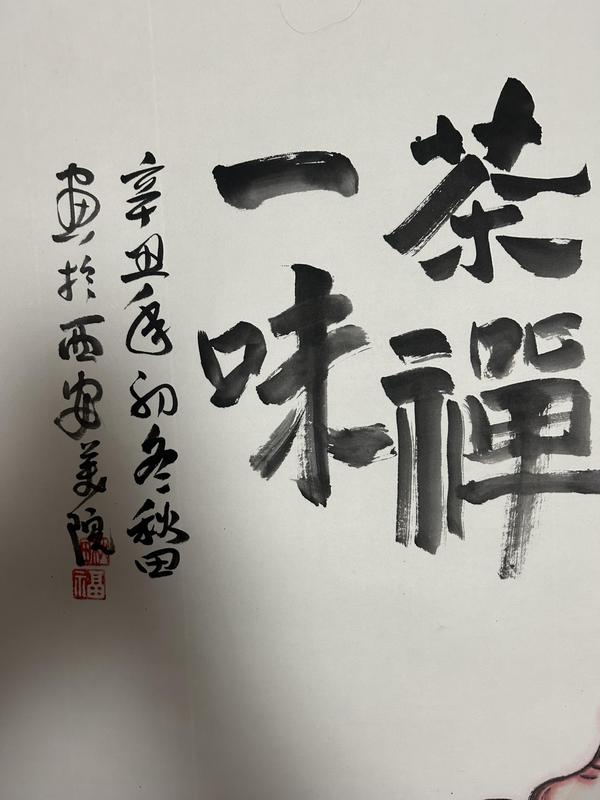 茶禪
一味
辛丑年初冬秋田
画於西安美院
福